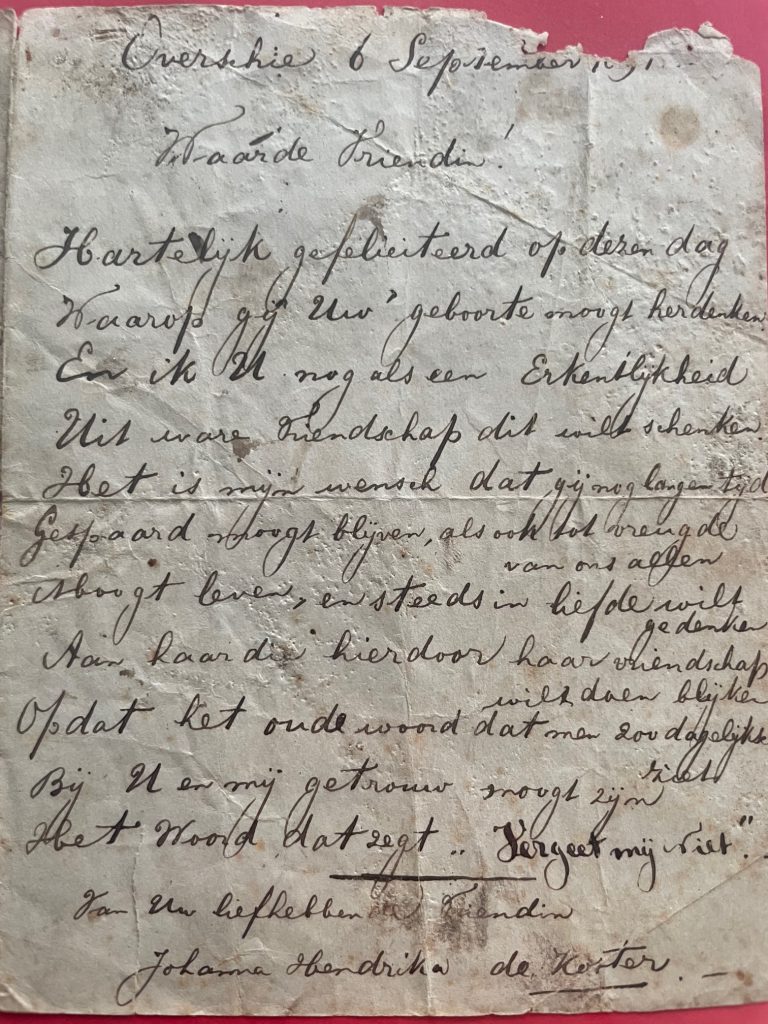 Overschie 6 September
Waarde Vriendin!
Hartelijk gefeliciteerd op dezen dag
Waarop gij Uw' geboorte moogt herdenken.
En ik U nog als een Erkentlijkheid
Uit ware Vriendschap dit wilt schenken.
Het is mijn wensch dat gij nog langen tijd
Gespaard moogt blijven, als ook tot vreugde
van ons allen
Moogt leven, en steeds in liefde wilt
gedenken
Aan haar die hierdoor haar vriendschap
wilt doen blijken
Opdat het oude woord dat men zoo dagelijks
ziet
Bij U en mij getrouw moogt zijn
Het Woord dat zegt „Vergeet mij Niet".
Van Uw liefhebbende Vriendin
Johanna Hendrika de Koster. —